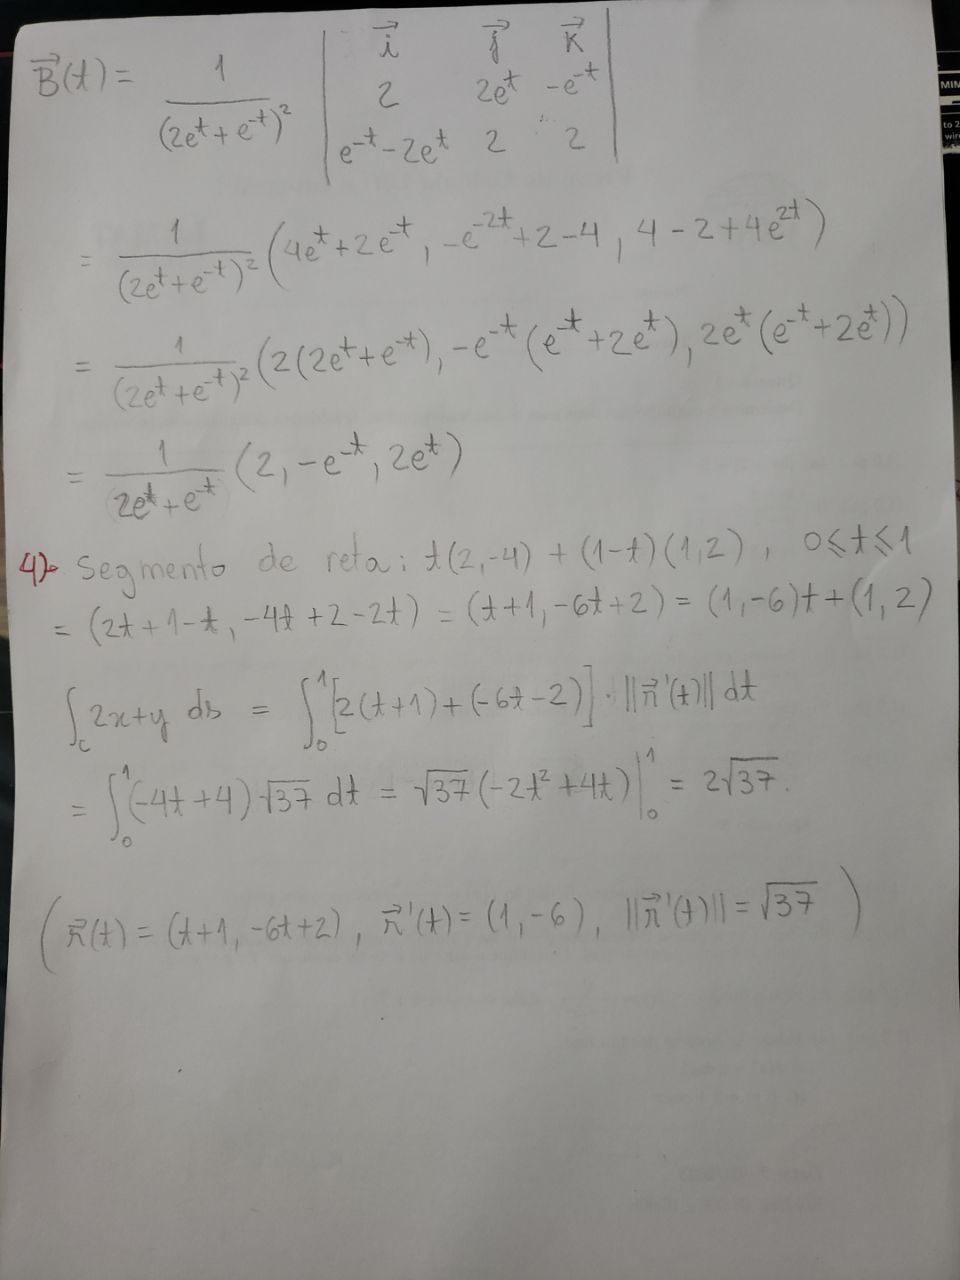 B⃗(t) = 1/(2e^t + e^-t)^2 | i⃗ j⃗ k⃗ |
| 2 2e^t -e^-t |
| e^-t - 2e^t 2 2 |
= 1/(2e^t + e^-t)^2 (4e^t + 2e^-t, -e^-2t + 2 - 4, 4 - 2 + 4e^2t)
= 1/(2e^t + e^-t)^2 (2(2e^t + e^-t), -e^-t (e^-t + 2e^t), 2e^t (e^-t + 2e^t))
= 1/(2e^t + e^-t) (2, -e^-t, 2e^t)
4) Segmento de reta: t(2,-4) + (1-t)(1,2), 0 ≤ t ≤ 1
= (2t + 1 - t, -4t + 2 - 2t) = (t+1, -6t+2) = (1,-6)t + (1,2)
∫_c 2x+y ds = ∫_0^1 [2(t+1) + (-6t-2)] · ||r⃗'(t)|| dt
= ∫_0^1 (-4t+4)√37 dt = √37 (-2t² + 4t) |_0^1 = 2√37.
( r⃗(t) = (t+1, -6t+2), r⃗'(t) = (1, -6), ||r⃗'(t)|| = √37 )
MIM
to 2
wire